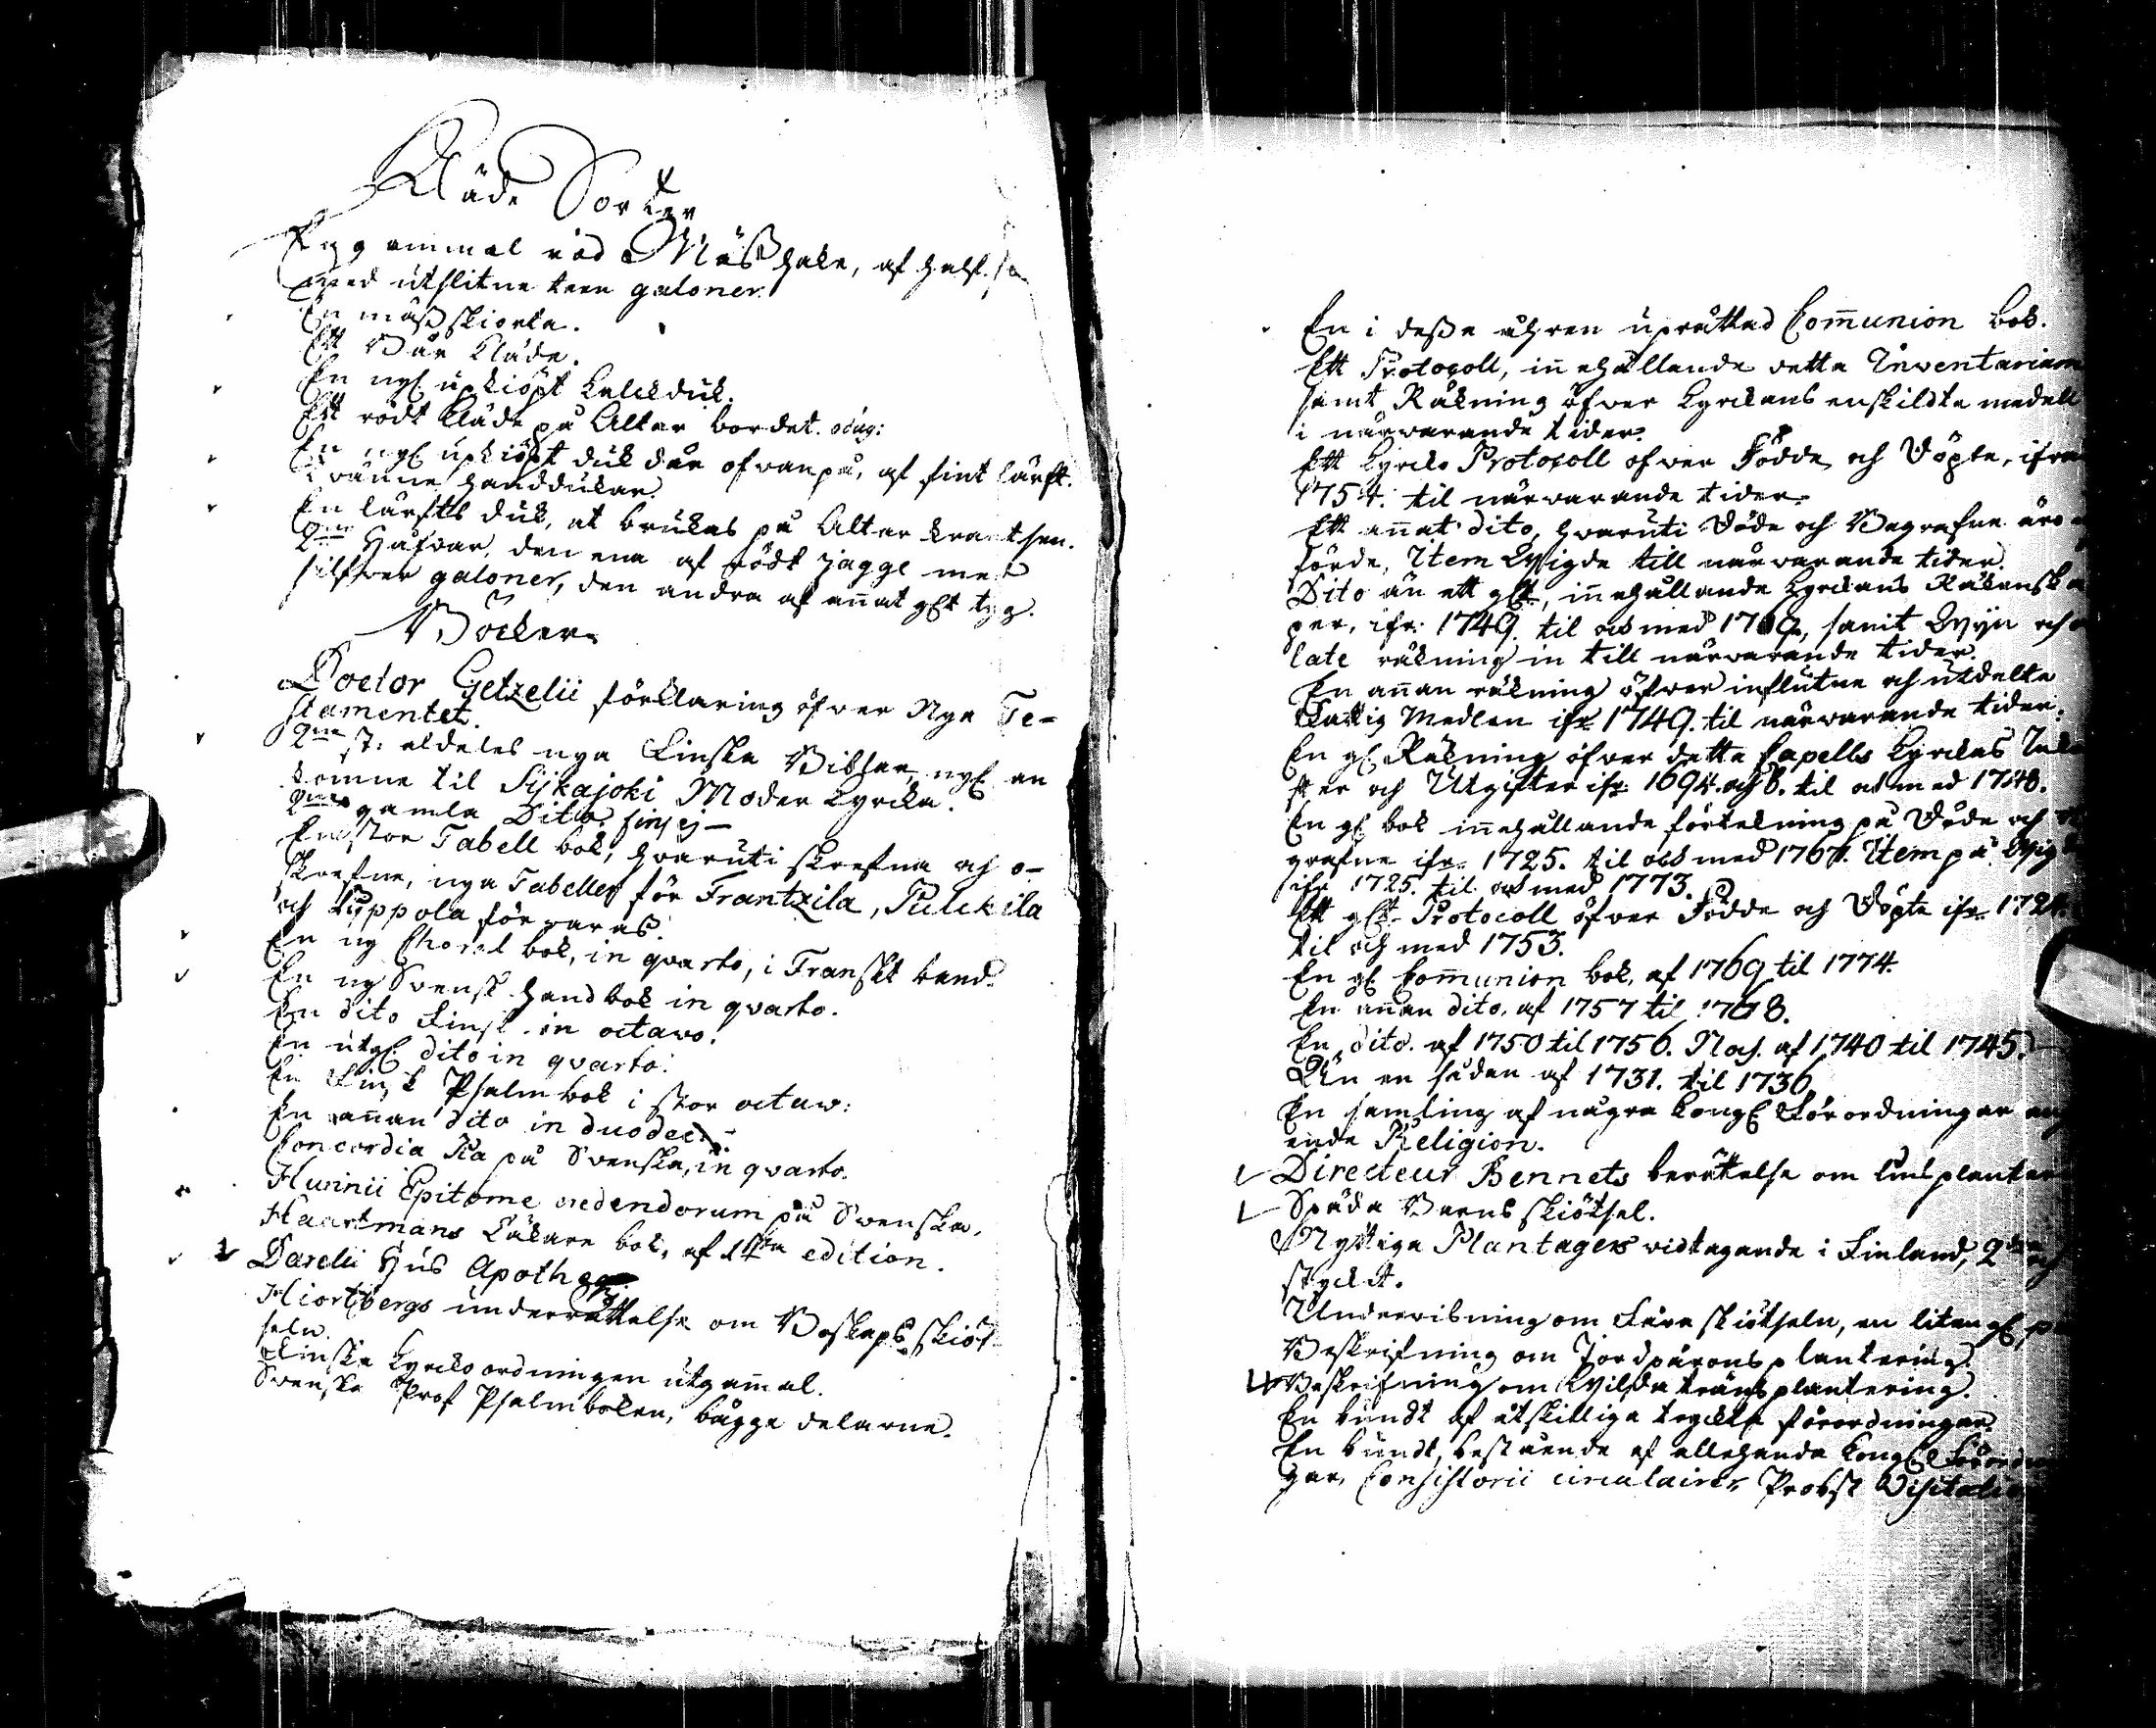 Kläde Sorter
En gammal röd Mässhake, af half.
med utslitne teen galoner.
En mässskiorta.
Ett Bår kläde.
En nyl. upkiöpt kalckduk.
Ett rödt kläde på Altar bordet. odug:
En nyl. upkiöpt duk der ofvanpå, af fint lärft.
Tvänne handdukar.
En lärfts duk, at brukas på Altar krantsen.
2ne Håfvar, den ena af rödt sagge med
silfver galoner, den andra af annat glt tyg.
Böcker.
Doctor Getzelii förklaring öfver Nya Te-
stamentet.
2ne st: aldeles nya Finska Biblar, nyl. an
komne til Sijkajoki Moder kyrcka.
2ne gamla Dito. fins ej
En stor Tabell bok, hvaruti skrefna och o-
skrefne, nya Tabeller för Frantzila, Pulckila
och Luppola förvaras.
En ny Choral bok, in qvarto, i Franskt band.
En ny Svensk handbok in qvarto.
En dito Finsk in octavo.
En utgl. dito in qvarto.
En Finsk Psalmbok i stor octav:
En annan dito in duodec:
Concordia Pia på Svenska, in qvarto.
Hurinii Epitome credendorum på Svenska.
Haartmans Läkare bok, af 1sta edition.
Darelii Hus Apothek
Hiortbergs underrättelse om Boskaps skiöt-
seln.
Finska kyrcko ordningen utgammal.
Svenska Prof Psalmboken, bägge delarne.
En i dessa åhren uprättad Communion bok.
Ett Protocoll, innehållande detta Inventarium
samt Räkning öfver kyrckans enskildta medell
i närvarande tider.
Ett kyrcko Protocoll öfver Födde och Döpte, ifrån
1754. til närvarande tider.
Ett annat dito, hvaruti Döde och Begrafne äro
förde, Item Wigde till närvarande tider.
Dito än ett glt, innehållande kyrckans Räkenska
per, ifr. 1749. til och med 1769, samt Wijn och
late räkning in till närvarande tider.
En annan räkning öfver influtne och utdelte
Fattig Medlen ifr 1749. til närvarande tider.
En gl. Räkning öfver detta Capells kyrckas Inkom
ster och Utgifter ifr. 1694. och 8. til och med 1748.
En gl. bok innehållande förtekning på Döde och Be
grafne ifr. 1725. til och med 1767. Item på Wigde
ifr. 1725. til och med 1773.
Ett glt Protocoll öfver Födde och Döpte ifr. 1724.
til och med 1753.
En gl. Communion bok, af 1769 til 1774.
En annan dito, af 1757 til 1768.
En dito. af 1750 til 1756. Noch. af 1740 til 1745.
Än en sådan af 1731. til 1736.
En samling af några kongl. Förordningar ang
ende Religion.
Directeur Bennets berättelse om lins planter
Späda Barns skiötsel.
Nyttiga Plantagers vidtagande i Finland, 2dra
stycket.
Undervisning om Fåra skiötseln, en liten gl.
Beskrifning om Jordpärons plantering.
Beskrifning om Wilda träns plantering.
En bundt af åtskilliga tryckta förordningar.
En bundt, bestående af allehanda kongl. Förordnin
gar, Consistorii circulairer, Probst Visitation